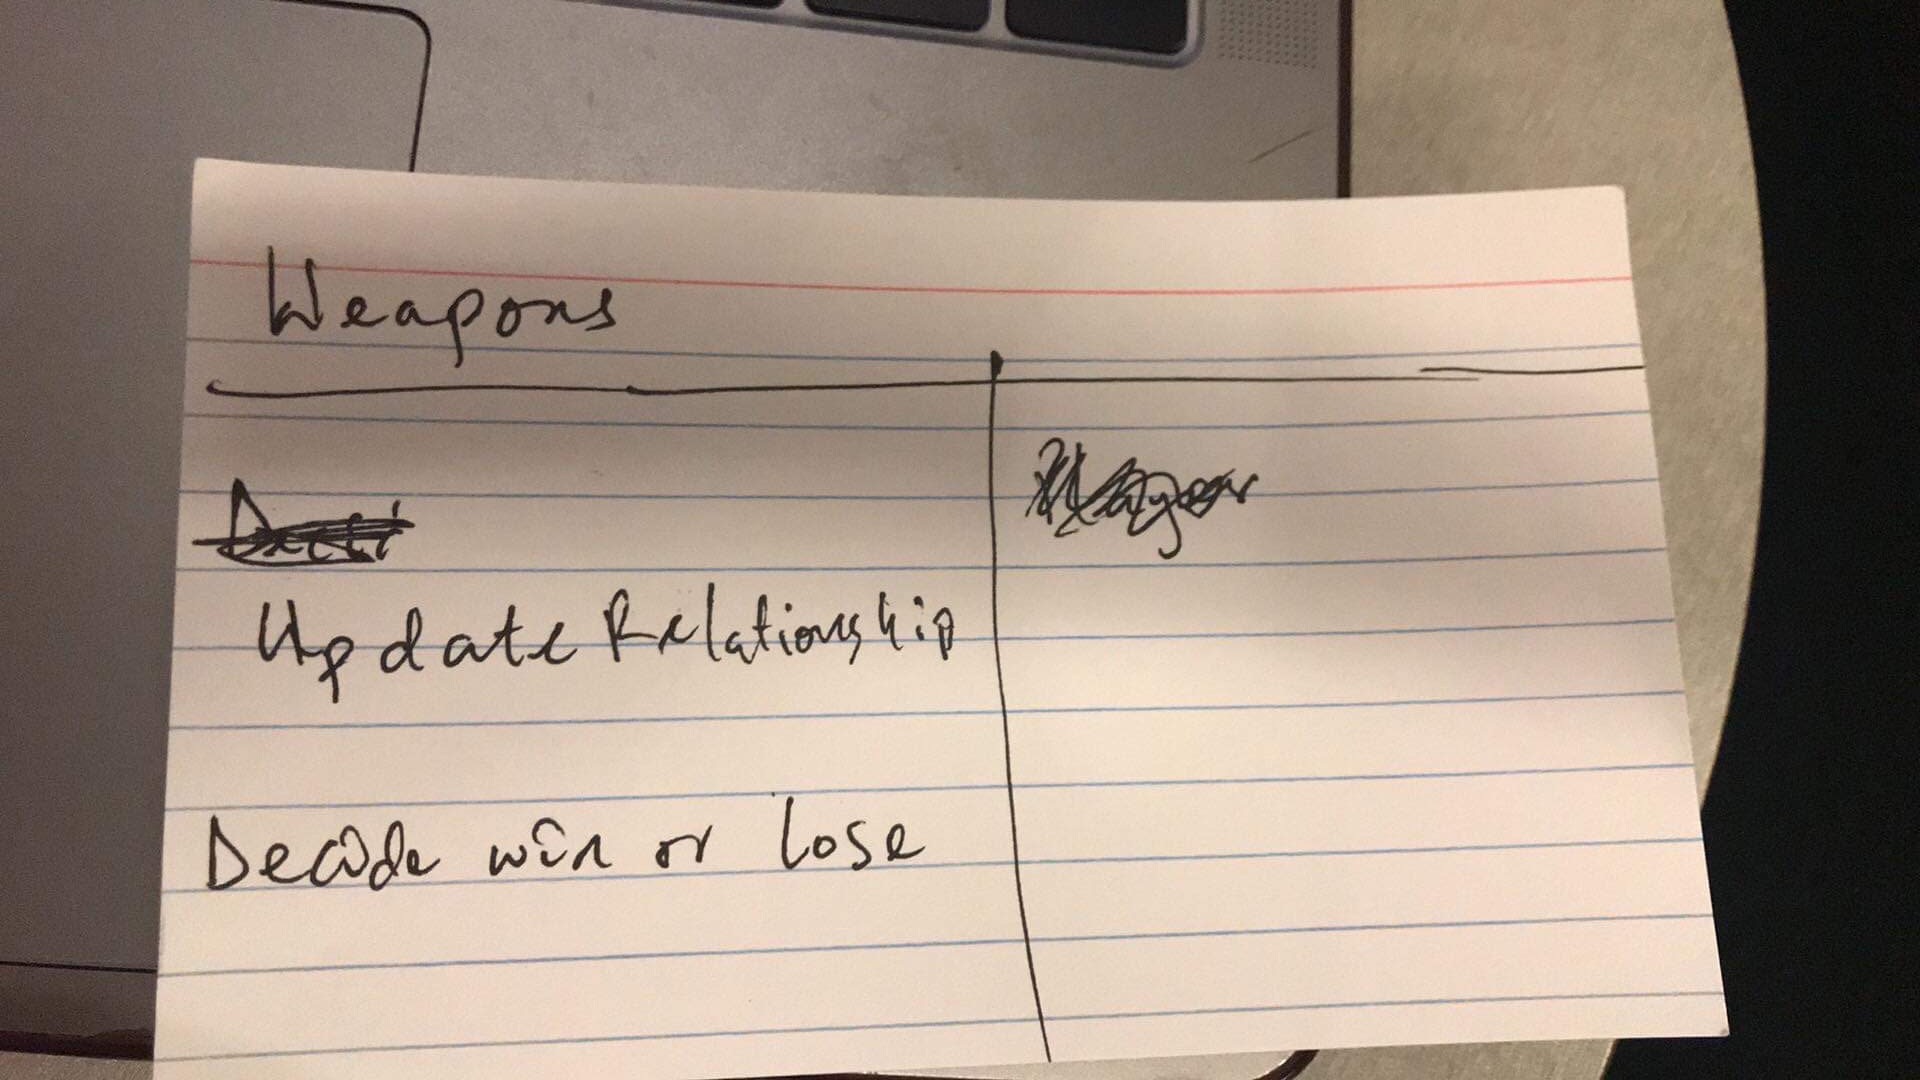 Weapons
Update Relationship
Decide win or lose